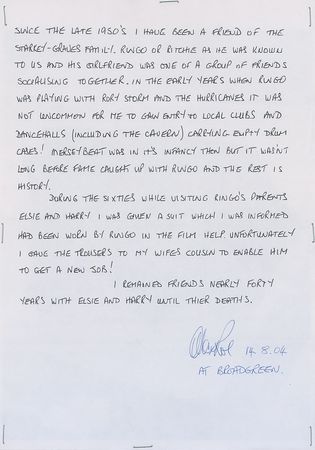 SINCE THE LATE 1950'S I HAVE BEEN A FRIEND OF THE
STARKEY-GRAVES FAMILY. RINGO OR RITCHIE AS HE WAS KNOWN
TO US AND HIS GIRLFRIEND WAS ONE OF A GROUP OF FRIENDS
SOCIALISING TOGETHER. IN THE EARLY YEARS WHEN RINGO
WAS PLAYING WITH RORY STORM AND THE HURRICANES IT WAS
NOT UNCOMMON FOR ME TO GAIN ENTRY TO LOCAL CLUBS AND
DANCEHALLS (INCLUDING THE CAVERN) CARRYING EMPTY DRUM
CASES! MERSEYBEAT WAS IN IT'S INFANCY THEN BUT IT WASN'T
LONG BEFORE FAME CAUGHT UP WITH RINGO AND THE REST IS
HISTORY.
DURING THE SIXTIES WHILE VISITING RINGO'S PARENTS
ELSIE AND HARRY I WAS GIVEN A SUIT WHICH I WAS INFORMED
HAD BEEN WORN BY RINGO IN THE FILM HELP. UNFORTUNATELY
I GAVE THE TROUSERS TO MY WIFE'S COUSIN TO ENABLE HIM
TO GET A NEW JOB!
I REMAINED FRIENDS NEARLY FORTY
YEARS WITH ELSIE AND HARRY UNTIL THIER DEATHS.
14.8.04
AT BROADGREEN.